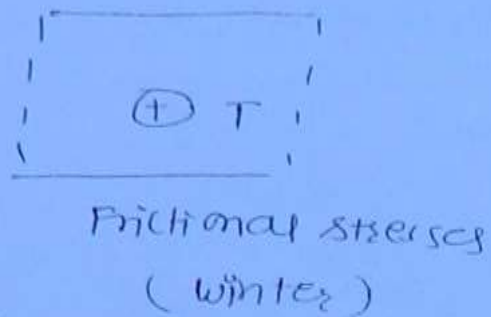 (+) T
Frictional stresses
(Winter)